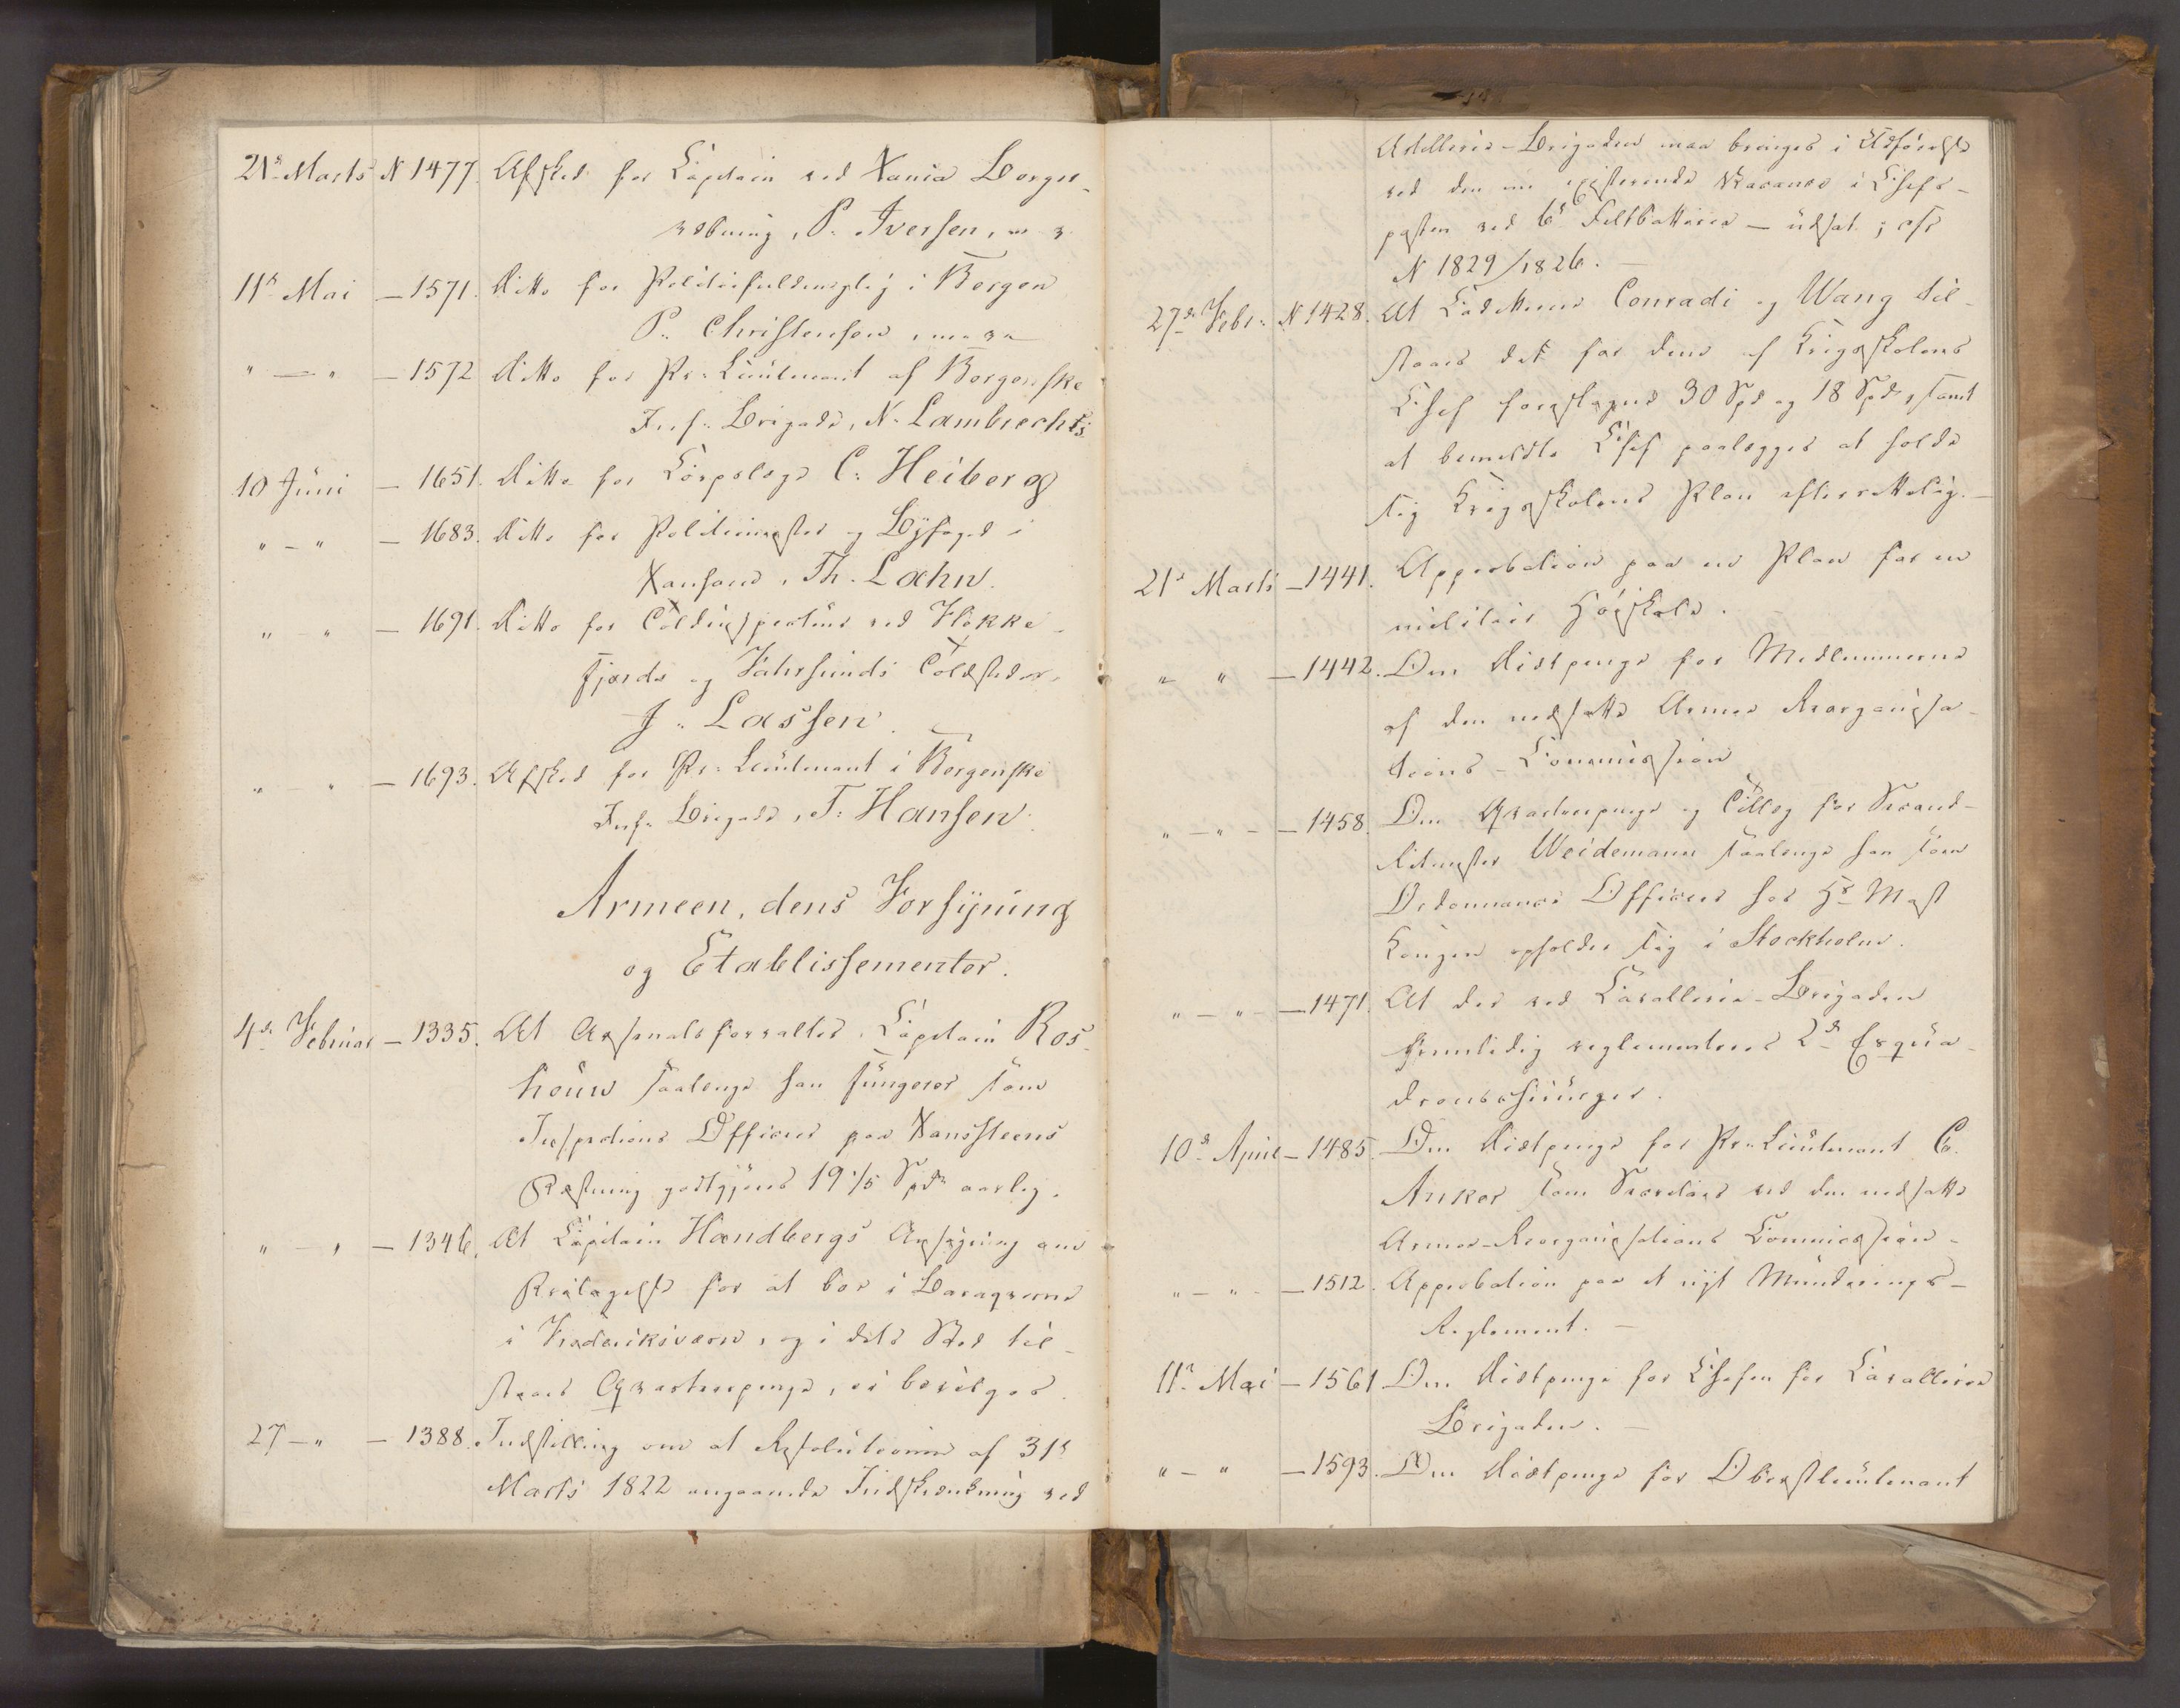 21de Marts N 1477. Afsked for Capitain ved Xania Borger-
væbning, P. Iversen, m
11te Mai - 1571. Ditto for Politiefuldmægtig i Bergen
P. Christensen,
" — " - 1572 Ditto for Pr: Lieutenant af Bergenske
Inf: Brigade, N. Lambrechts
10 Juni - 1651. Ditto for Corpslæge C: Heiberg
" - " - 1683. Ditto for Politiemester og Byfoged i
Xansand, Th. Lahn.
" - " - 1691. Ditto for Toldinspecteur ved Flekke-
fjords og Fahrsunds Toldsteder,
J. Lassen.
" - " - 1693. Afsked for Pr: Lieutenant i Bergenske
Inf: Brigade, T: Hansen.
Armeen, dens Forsyning
og Etablissementer.
4de Februar - 1335. At Arsenalsforvalter, Capitain Ros-
houw saalænge han fungerer som
Inspections Officier paa Xanssteens
Fæstning godtgjøres 19 1/5 Spdr aarlig.
" - " - 1346. At Capitain Handbergs Ansøgning om
Fritagelse for at boe i Baraqverne
i Frederiksværn, og i dets Sted til-
staaes Qvarteerpenge, ei bevilges.
27 - " - 1388. Indstilling om at Resolutionen af 31te
Marts 1822 angaaende Indskrænkning ved
Artillerie-Brigaden maa bringes i Udførelse
ved den nu existerende Vacance i Chefs-
posten ved 6te Feltbatterie - udsat; cfr
N 1829/1826. -
27de Febr: N 1428. At Cadetterne Conradi og Wang til-
staaes det for dem af Krigsskolens
Chef foreslagne 30 Spd og 18 Spdr, samt
at bemeldte Chef paalægges at holde
sig Krigsskolens Plan efterrettelig. -
21de Marts - 1441. Approbation paa en Plan for en
militair Høiskole.
" " - 1442. Om Diætpenge for Medlemmerne
af den nedsatte Armee Reorganisa-
tions-Commission
" - " - 1458. Om Qvarteerpenge og Tillæg for Second-
Ritmester Weidemann saalænge han som
Ordonnance Officier hos Hs Majt
Kongen opholder sig i Stockholm.
" - " - 1471. At der ved Cavallerie-Brigaden
fremtidig reglementeres 2de Esqua-
dronschirurger.
10de April - 1485. Om Diætpenge for Pr: Lieutenant C.
Anker som Secretair ved den nedsatte
Armee-Reorganisations Commission -
" - " - 1512. Approbation paa et nyt Munderings-
Reglement. -
11te Mai - 1561 Om Diætpenge for Chefen for Cavallerie
Brigaden. -
" - " - 1593. Om Diætpenge for Oberstlieutenant